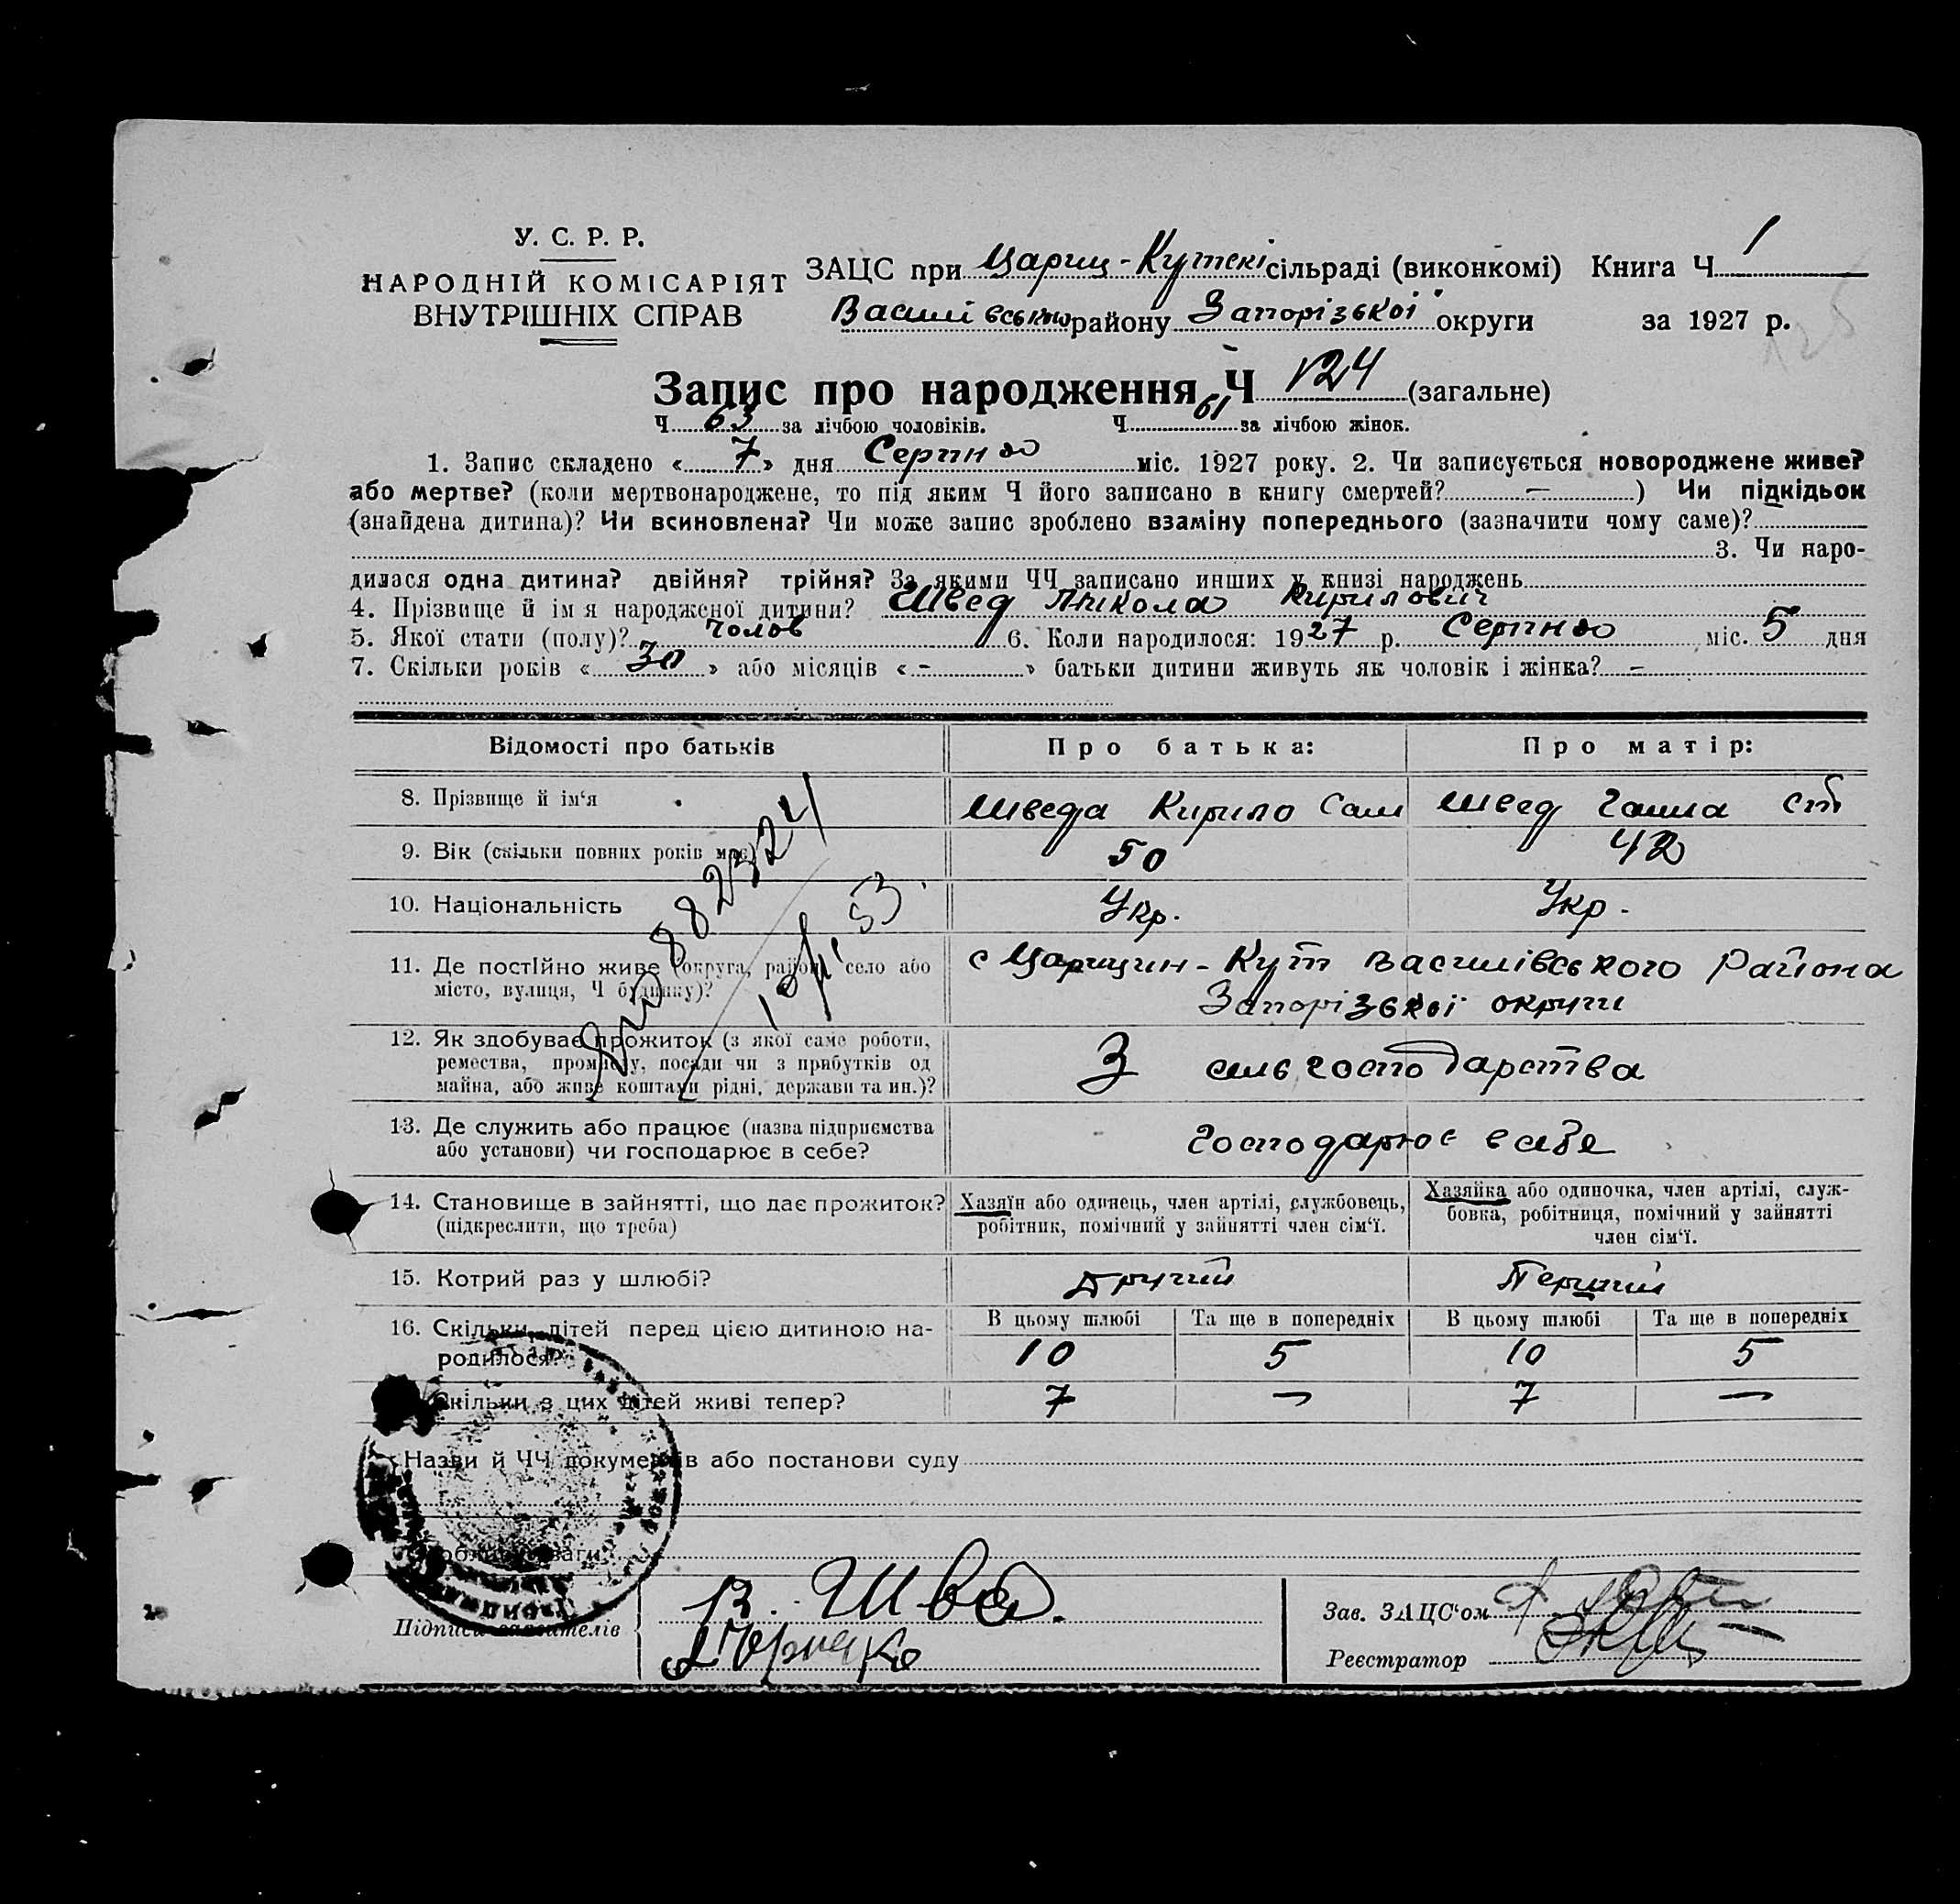 У. С. Р. Р.
НАРОДНІЙ КОМІСАРІЯТ
ВНУТРІШНІХ СПРАВ
ЗАЦС при Цариц-Кутскі сільраді (виконкомі) Книга Ч 1
Василівського району Запорізької округи за 1927 р.
125
Запис про народження Ч 124 (загальне)
Ч 63 за лічбою чоловіків. Ч 61 за лічбою жінок.
1. Запис складено « 7 » дня Серпню міс. 1927 року. 2. Чи записується новороджене живе?
або мертве? (коли мертвонароджене, то під яким Ч його записано в книгу смертей? — ) Чи підкідьок
(знайдена дитина)? Чи всиновлена? Чи може запис зроблено взаміну попереднього (зазначити чому саме)?
3. Чи наро-
дилася одна дитина? двійня? трійня? За якими ЧЧ записано инших у книзі народжень
4. Прізвище й ім я народженої дитини? Швед Микола Кирилович
5. Якої стати (полу)? Чолов 6. Коли народилося: 1927 р. Серпню міс. 5 дня
7. Скільки років « 30 » або місяців « - » батьки дитини живуть як чоловік і жінка? -
Відомості про батьків Про батька: Про матір:
8. Прізвище й ім‘я Шведа Кирило Сам Швед Ганна Ст
9. Вік (скільки повних років має) 50 42
10. Національність Укр. Укр.
11. Де постійно живе (округа, район, село або
місто, вулиця, Ч будинку)?
с Царицин-Кут Василівського Района
Запорізької округи
12. Як здобуває прожиток (з якої саме роботи,
ремества, промислу, посади чи з прибутків од
майна, або живе коштами рідні, держави та ин.)?
З сільгосподарства
13. Де служить або працює (назва підприємства
або установи) чи господарює в себе?
Господарює в себе
14. Становище в зайнятті, що дає прожиток?
(підкреслити, що треба)
Хазяїн або одинець, член артілі, службовець,
робітник, помічний у зайнятті член сім‘ї.
Хазяйка або одиночка, член артілі, служ-
бовка, робітниця, помічний у зайнятті
член сім‘ї.
15. Котрий раз у шлюбі? Другий Перший
16. Скільки дітей перед цією дитиною на-
родилося?
В цьому шлюбі Та ще в попередніх В цьому шлюбі Та ще в попередніх
10 5 10 5
Скільки з цих дітей живі тепер? 7 — 7 —
Назви й ЧЧ документів або постанови суду
Підписи заявителів
Зав. ЗАЦС‘ом
Реєстратор